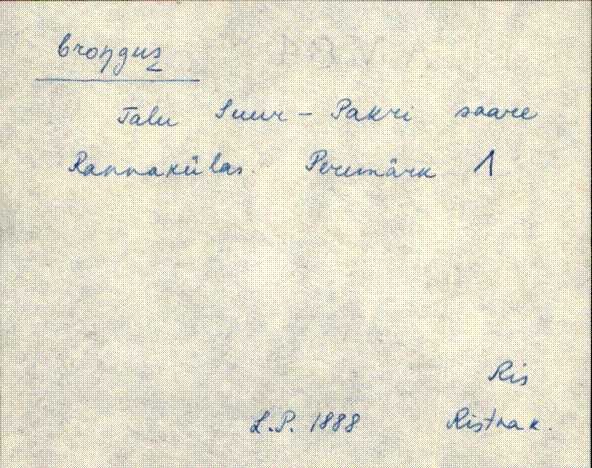 broŋgus
Talu Suur-Pakri saare
Rannakülas. Peremärk 1
Ris
L.P. 1888 Ristna k.